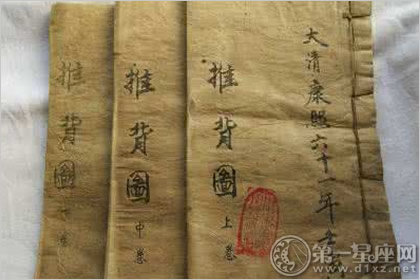 大清康熙六十一年
推背圖
上卷
推背圖
中卷
推背圖
第一星座网
www.d1xz.net